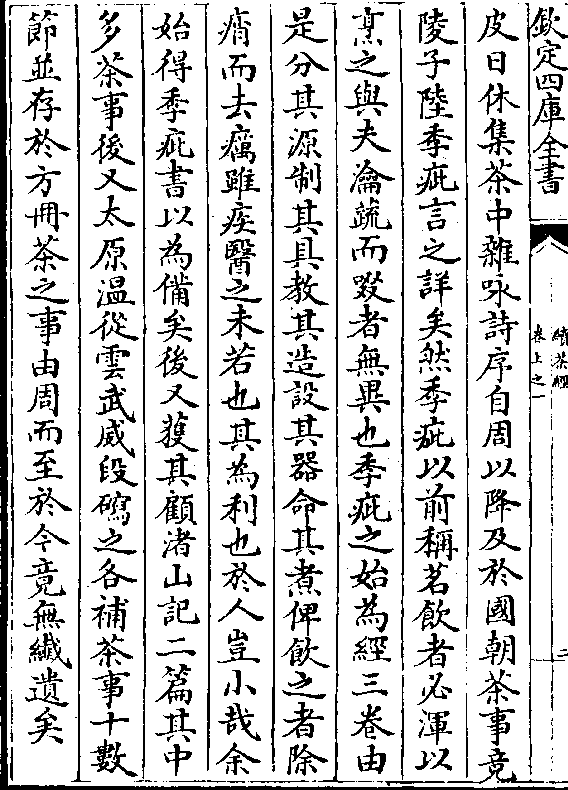 欽定四庫全書
續茶經
卷上之一
二
皮日休集茶中雜咏詩序自周以降及於國朝茶事竟
陵子陸季疵言之詳矣然季疵以前稱茗飲者必渾以
烹之與夫瀹蔬而啜者無異也季疵之始為經三卷由
是分其源制其具教其造設其器命其煮俾飲之者除
痟而去癘雖疾醫之未若也其為利也於人豈小哉余
始得季疵書以為備矣後又獲其顧渚山記二篇其中
多茶事後又太原溫從雲武威段磶之各補茶事十數
節並存於方冊茶之事由周而至於今竟無纖遺矣